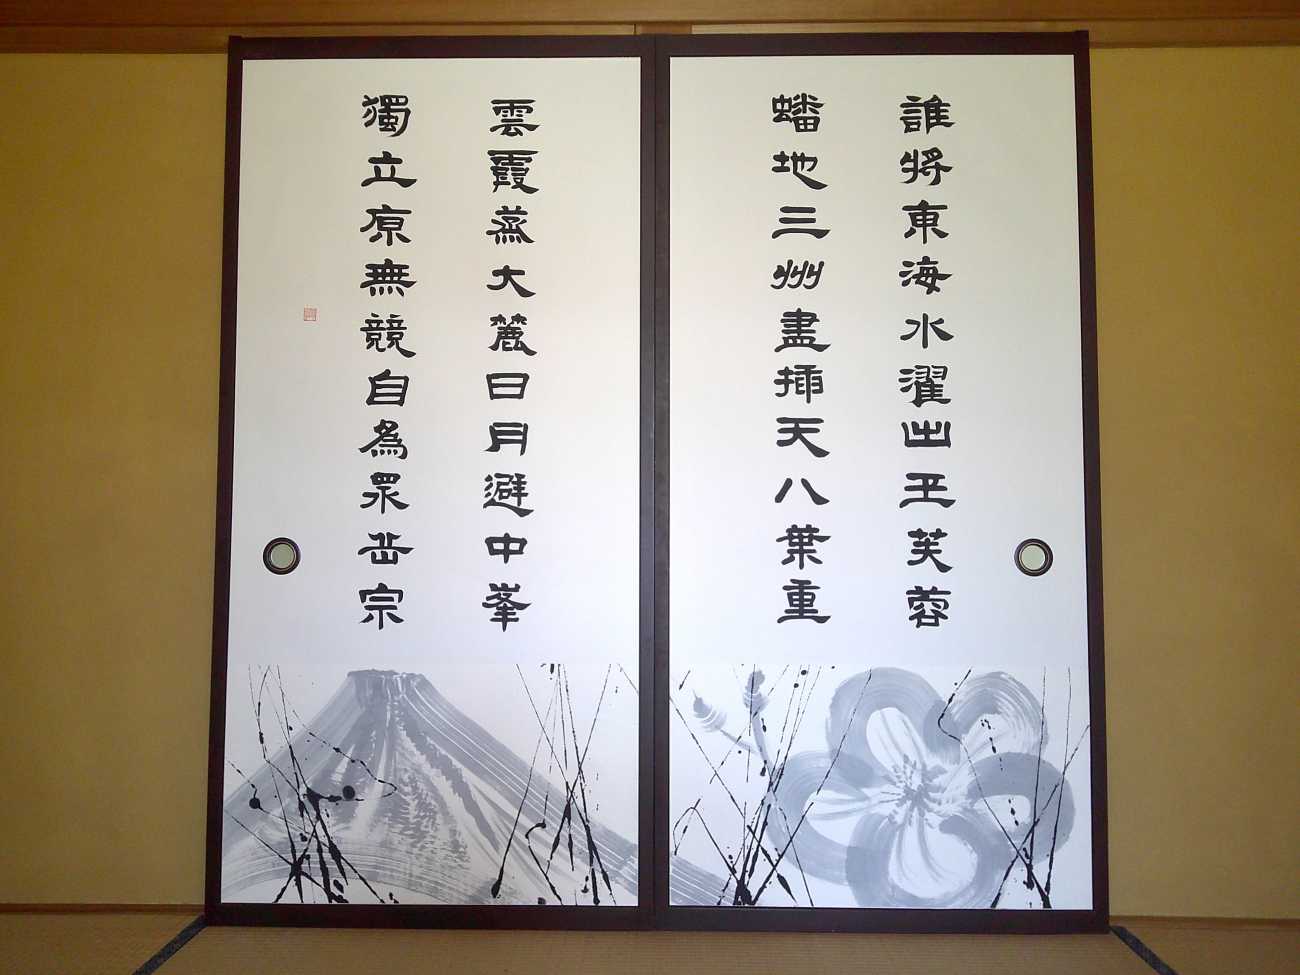 誰將東海水濯出玉芙蓉
蟠地三州盡揷天八葉重
雲霞蒸大麓日月避中峯
獨立原無競自為衆岳宗